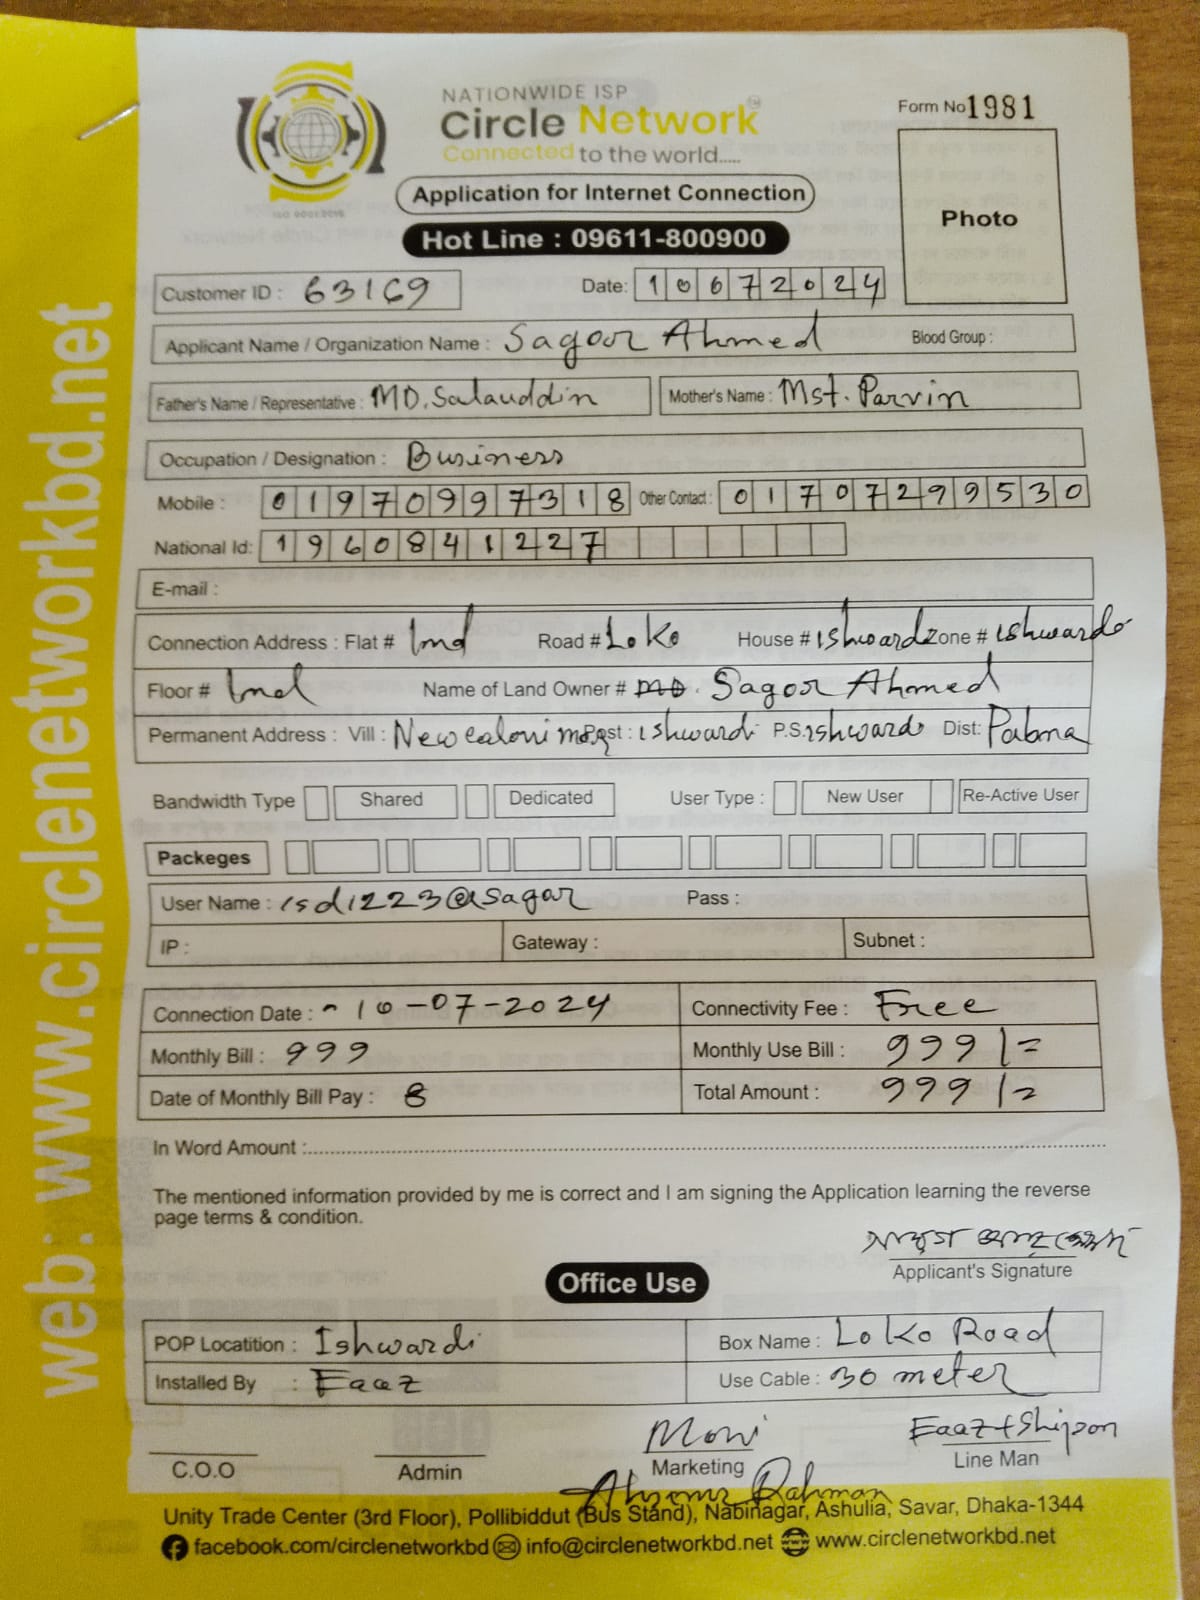 NATIONWIDE ISP
Circle Network TM
Connected to the world.....
ISO 9001:2015
Form No 1981
Application for Internet Connection
Photo
Hot Line : 09611-800900
Customer ID : 63169 Date: 10072024
Applicant Name / Organization Name : Sagor Ahmed Blood Group :
Father's Name / Representative : MD. Salauddin Mother's Name : Mst. Parvin
Occupation / Designation : Business
Mobile : 01970997318 Other Contact : 01707299530
National Id: 1960841227
E-mail :
Connection Address : Flat # Road # Loko House # ishwardi Zone # ishwardi
Floor # Name of Land Owner # MD. Sagor Ahmed
Permanent Address : Vill : New caloni Post : ishwardi P.S. ishwardi Dist: Pabna
Bandwidth Type Shared Dedicated User Type : New User Re-Active User
Packeges
User Name : isd1223@sagar Pass :
IP : Gateway : Subnet :
Connection Date : - 10-07-2024 Connectivity Fee : Free
Monthly Bill : 999 Monthly Use Bill : 999/=
Date of Monthly Bill Pay : 8 Total Amount : 999/=
In Word Amount :
The mentioned information provided by me is correct and I am signing the Application learning the reverse
page terms & condition.
Applicant's Signature
Office Use
POP Locatition : Ishwardi Box Name : Loko Road
Installed By : Eaaz Use Cable : 30 meter
Moni Eaaz + Shipon
C.O.O Admin Marketing Line Man
Rahman
Unity Trade Center (3rd Floor), Pollibiddut (Bus Stand), Nabinagar, Ashulia, Savar, Dhaka-1344
facebook.com/circlenetworkbd info@circlenetworkbd.net www.circlenetworkbd.net
web: www.circlenetworkbd.net